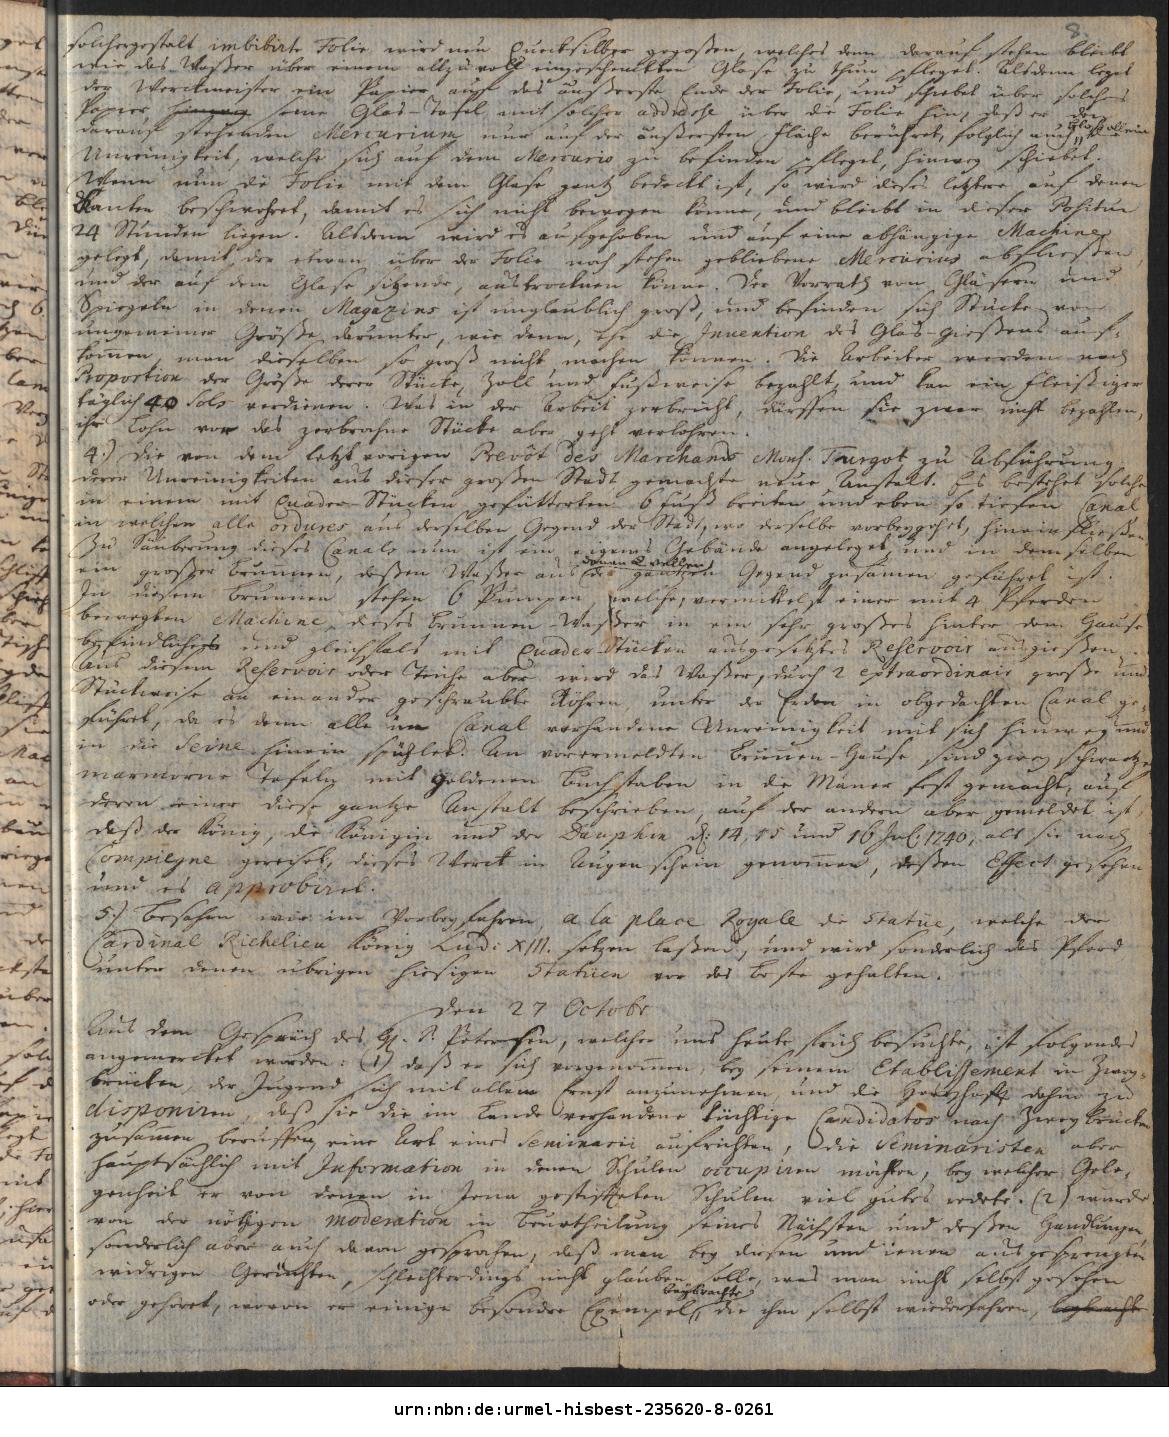 8.
solchergestalt imbibirte Folie wird nun Quecksilber gegoßen, welches denn darauf stehen bleibt
wie das Waßer über einem allzuvoll eingeschenkten Glase zu thun pfleget. Alsdenn leget
der Werckmeister ein Papier auf das äußerste Ende der Folie, und schiebet über solches
Papier hinweg seine Glas-Tafel mit solcher addresse über die Folie hin, daß er den
darauf stehenden Mercurium nur auf der äußersten Fläche berühret, folglich auch alle
Unreinigkeit, welche sich auf dem Mercurio zu befinden pfleget, hinweg schiebet.
Wenn nun die Folie mit dem Glase gantz bedeckt ist, so wird dieses letztere auf denen
Kanten beschwehret, damit es sich nicht bewegen könne, und bleibt in dieser Positur
24 Stunden liegen. Alsdenn wird es aufgehoben und auf eine abhängige Machine
gelegt, damit der etwan über der Folie noch stehen gebliebene Mercurius abfließen,
und der auf dem Glase sitzende, austrocknen könne. Der Vorrath von Gläsern und
Spiegeln in denen Magazins ist unglaublich groß, und befinden sich Stücke von
ungemeiner Größe darunter, wie denn, ehe die Invention des Glas-Gießens auf-
kommen, man dieselben so groß nicht machen können. Die Arbeiter werden nach
Proportion der Größe derer Stücke, Zoll und Fußweise bezahlt, und kan ein fleißiger
täglich 40 Sols verdienen. Was in der Arbeit zerbricht, dürffen sie zwar nicht bezahlen,
ihr Lohn vor das zerbrochne Stücke aber geht verlohren.
4.) Die von dem letzt vorigen Prevôt des Marchands Mons. Turgot zu Abführung
derer Unreinigkeiten aus dieser großen Stadt gemachte neue Anstalt. Es bestehet solche
in einem mit Quader-Stücken gefütterten 6 Fuß breiten und eben so tiefen Canal
in welchen alle ordures aus derselben Gegend der Stadt, wo derselbe vorbeygehet, hinein fließen.
Zu Säuberung dieses Canals nun ist ein eigenes Gebäude angeleget, und in demselben
ein großer Brunnen, deßen Waßer aus denen Quellen der gantzen Gegend zusamen geführet ist.
In diesem Brunnen stehen 6 Pumpen, welche, vermittelst einer mit 4 Pferden
bewegten Machine, dieses Brunnen-Waßer in ein sehr großes hinter dem Hause
befindliches und gleichfals mit Quader-Stücken ausgesetztes Reservoir ausgießen.
Aus diesem Reservoir oder Teiche aber wird das Waßer, durch 2 extraordinair große und
Stückweise an einander geschraubte Röhren, unter der Erden in obgedachten Canal ge-
führet, da es denn alle im Canal vorhandene Unreinigkeit mit sich hinweg und
in die Seine hinein spühlet. An vorermeldten Brunnen-Hause sind zwey schwartze
marmorne Tafeln mit goldenen Buchstaben in die Mauer fest gemacht, auf
deren einer diese gantze Anstalt beschrieben, auf der andern aber gemeldet ist,
daß der König, die Königin und der Dauphin d. 14, 15 und 16 Jul. 1740, als sie nach
Compiegne gereiset, dieses Werck in Augenschein genommen, deßen Effect gesehen
und es approbiret.
5.) Besahen wir im Vorbeyfahren a la place Royale die Statüe, welche der
Cardinal Richelieu König Lud: XIII. setzen laßen, und wird sonderlich das Pferd
unter denen übrigen hiesigen Statüen vor das beste gehalten.
den 27 Octobr
Aus dem Gespräch des H. P. Petersen, welcher uns heute früh besuchte, ist folgendes
angemercket worden: (1) daß er sich vorgenommen, bey seinem Etablissement in Zwey-
brücken, der Jugend sich mit allem Ernst anzunehmen, und die Herrschafft dahin zu
disponiren, daß sie die im Lande vorhandene tüchtige Candidatos nach Zweybrücken
zusamen beruffen, eine Art eines Seminarii aufrichten, die Seminaristen aber
hauptsächlich mit Information in denen Schulen occupiren möchten, bey welcher Gele-
genheit er von denen in Jena gestifteten Schulen viel gutes redete. (2) wurde
von der nöthigen moderation in Beurtheilung seines Nächsten und deßen Handlungen
sonderlich aber auch davon gesprochen, daß man bey diesen und jenen ausgesprengten
widrigen Gerüchten, schlechterdings nicht glauben solle, was man nicht selbst gesehen
oder gehöret, wovon er einige besondre Exempel, die ihm selbst wiederfahren, beybrachte
urn:nbn:de:urmel-hisbest-235620-8-0261